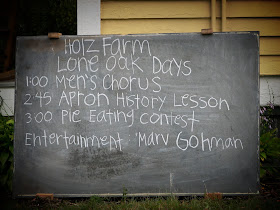 Holz Farm
Lone Oak Days
1:00 Men's Chorus
2:45 Apron History Lesson
3:00 Pie Eating contest
Entertainment 'Marv Gohman